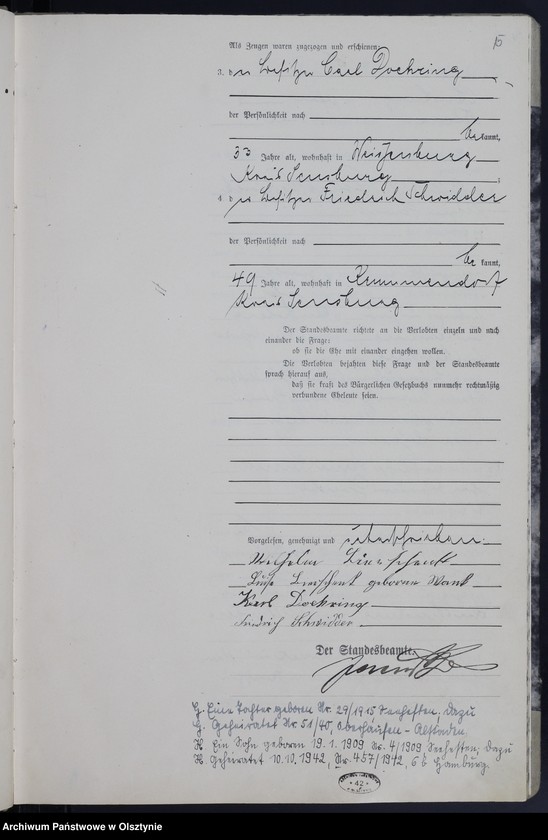 15
Als Zeugen waren zugezogen und erschienen:
3. der Besitzer Carl Doehring
der Persönlichkeit nach
be kannt,
33 Jahre alt, wohnhaft in Weissenburg
Kreis Sensburg ;
4. der Besitzer Friedrich Schwidder
der Persönlichkeit nach
be kannt,
49 Jahre alt, wohnhaft in Krummendorf
Kreis Sensburg
Der Standesbeamte richtete an die Verlobten einzeln und nach
einander die Frage:
ob sie die Ehe mit einander eingehen wollen.
Die Verlobten bejahten diese Frage und der Standesbeamte
sprach hierauf aus,
daß sie kraft des Bürgerlichen Gesetzbuchs nunmehr rechtmäßig
verbundene Eheleute seien.
Vorgelesen, genehmigt und unterschrieben.
Wilhelm
Luise geborene
Karl Doehring
Friedrich Schwidder
Der Standesbeamte.
G. Eine Tochter geboren Nr. 29/1915 Seehesten, dazu
G. Geheiratet Nr 51/40, Oberhausen-
H. Ein Sohn geboren 19. 1. 1909 Nr. 4/1909 Seehesten; dazu
H. geheiratet 10.10.1942, Nr. 457/1942, Hamburg.
42
Archiwum Państwowe w Olsztynie